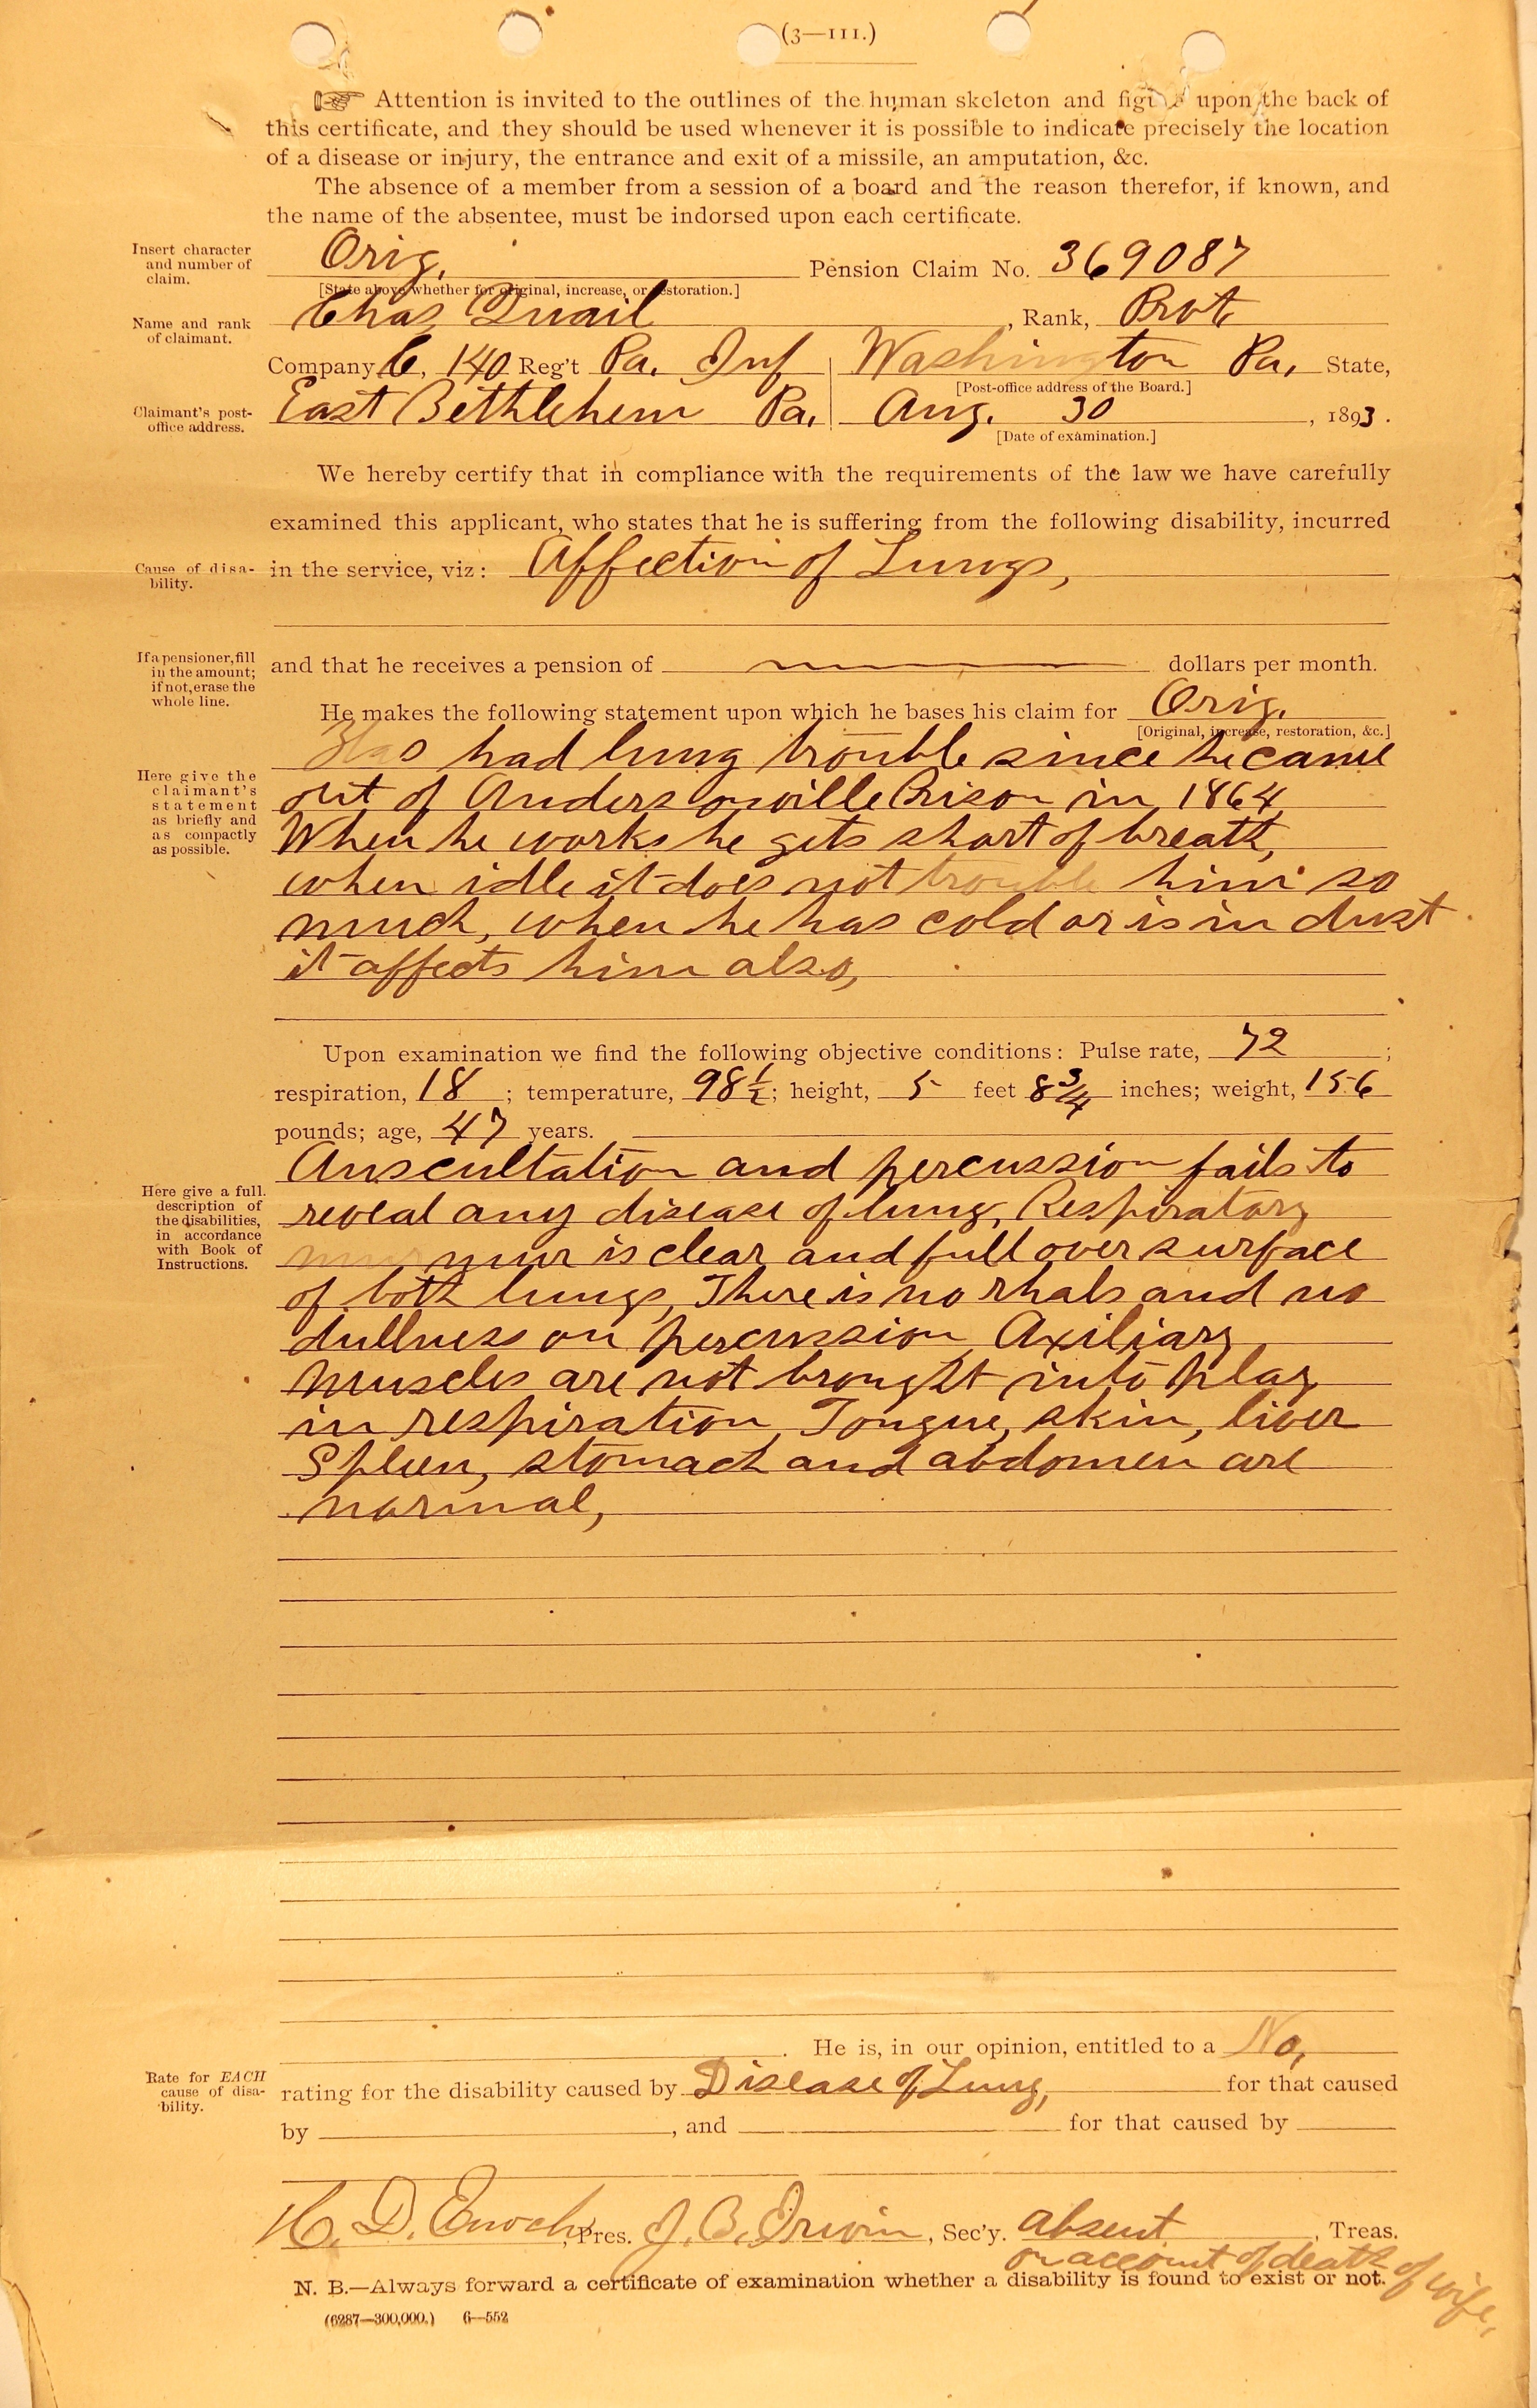 (3—111.)
☞ Attention is invited to the outlines of the human skeleton and figure upon the back of
this certificate, and they should be used whenever it is possible to indicate precisely the location
of a disease or injury, the entrance and exit of a missile, an amputation, &c.
The absence of a member from a session of a board and the reason therefor, if known, and
the name of the absentee, must be indorsed upon each certificate.
Insert character
and number of
claim.
Orig. Pension Claim No. 369087
[State above whether for original, increase, or restoration.]
Name and rank
of claimant.
Chas Quail, Rank, Prvt.
Company C, 140 Reg't Pa. Inf Washington Pa. State,
[Post-office address of the Board.]
Claimant's post-
office address.
East Bethlehem Pa. Aug. 30, 1893.
[Date of examination.]
We hereby certify that in compliance with the requirements of the law we have carefully
examined this applicant, who states that he is suffering from the following disability, incurred
Cause of disa-
bility.
in the service, viz: Affection of Lungs,
If a pensioner, fill
in the amount;
if not, erase the
whole line.
and that he receives a pension of dollars per month.
He makes the following statement upon which he bases his claim for Orig.
[Original, increase, restoration, &c.]
Here give the
claimant's
statement
as briefly and
as compactly
as possible.
Has had lung trouble since he came
out of Andersonville Prison in 1864
When he works he gets short of breath,
when idle it does not trouble him so
much, when he has cold or is in dust
it affects him also,
Upon examination we find the following objective conditions: Pulse rate, 72;
respiration, 18; temperature, 98½; height, 5 feet 8¾ inches; weight, 156
pounds; age, 47 years.
Here give a full
description of
the disabilities,
in accordance
with Book of
Instructions.
Auscultation and percussion fails to
reveal any disease of lung, Respiratory
murmur is clear and full over surface
of both lungs, There is no rhals and no
dullness on percussion Axiliary
muscles are not brought into play
in respiration, Tongue, skin, liver
Spleen, stomach and abdomen are
normal,
He is, in our opinion, entitled to a No,
Rate for EACH
cause of disa-
bility.
rating for the disability caused by Disease of Lung, for that caused
by , and for that caused by
H. D. Enoch, Pres. J. B. Irwin, Sec'y. absent, Treas.
on account of death of wife,
N. B.—Always forward a certificate of examination whether a disability is found to exist or not.
(6287—300,000.) 6—552